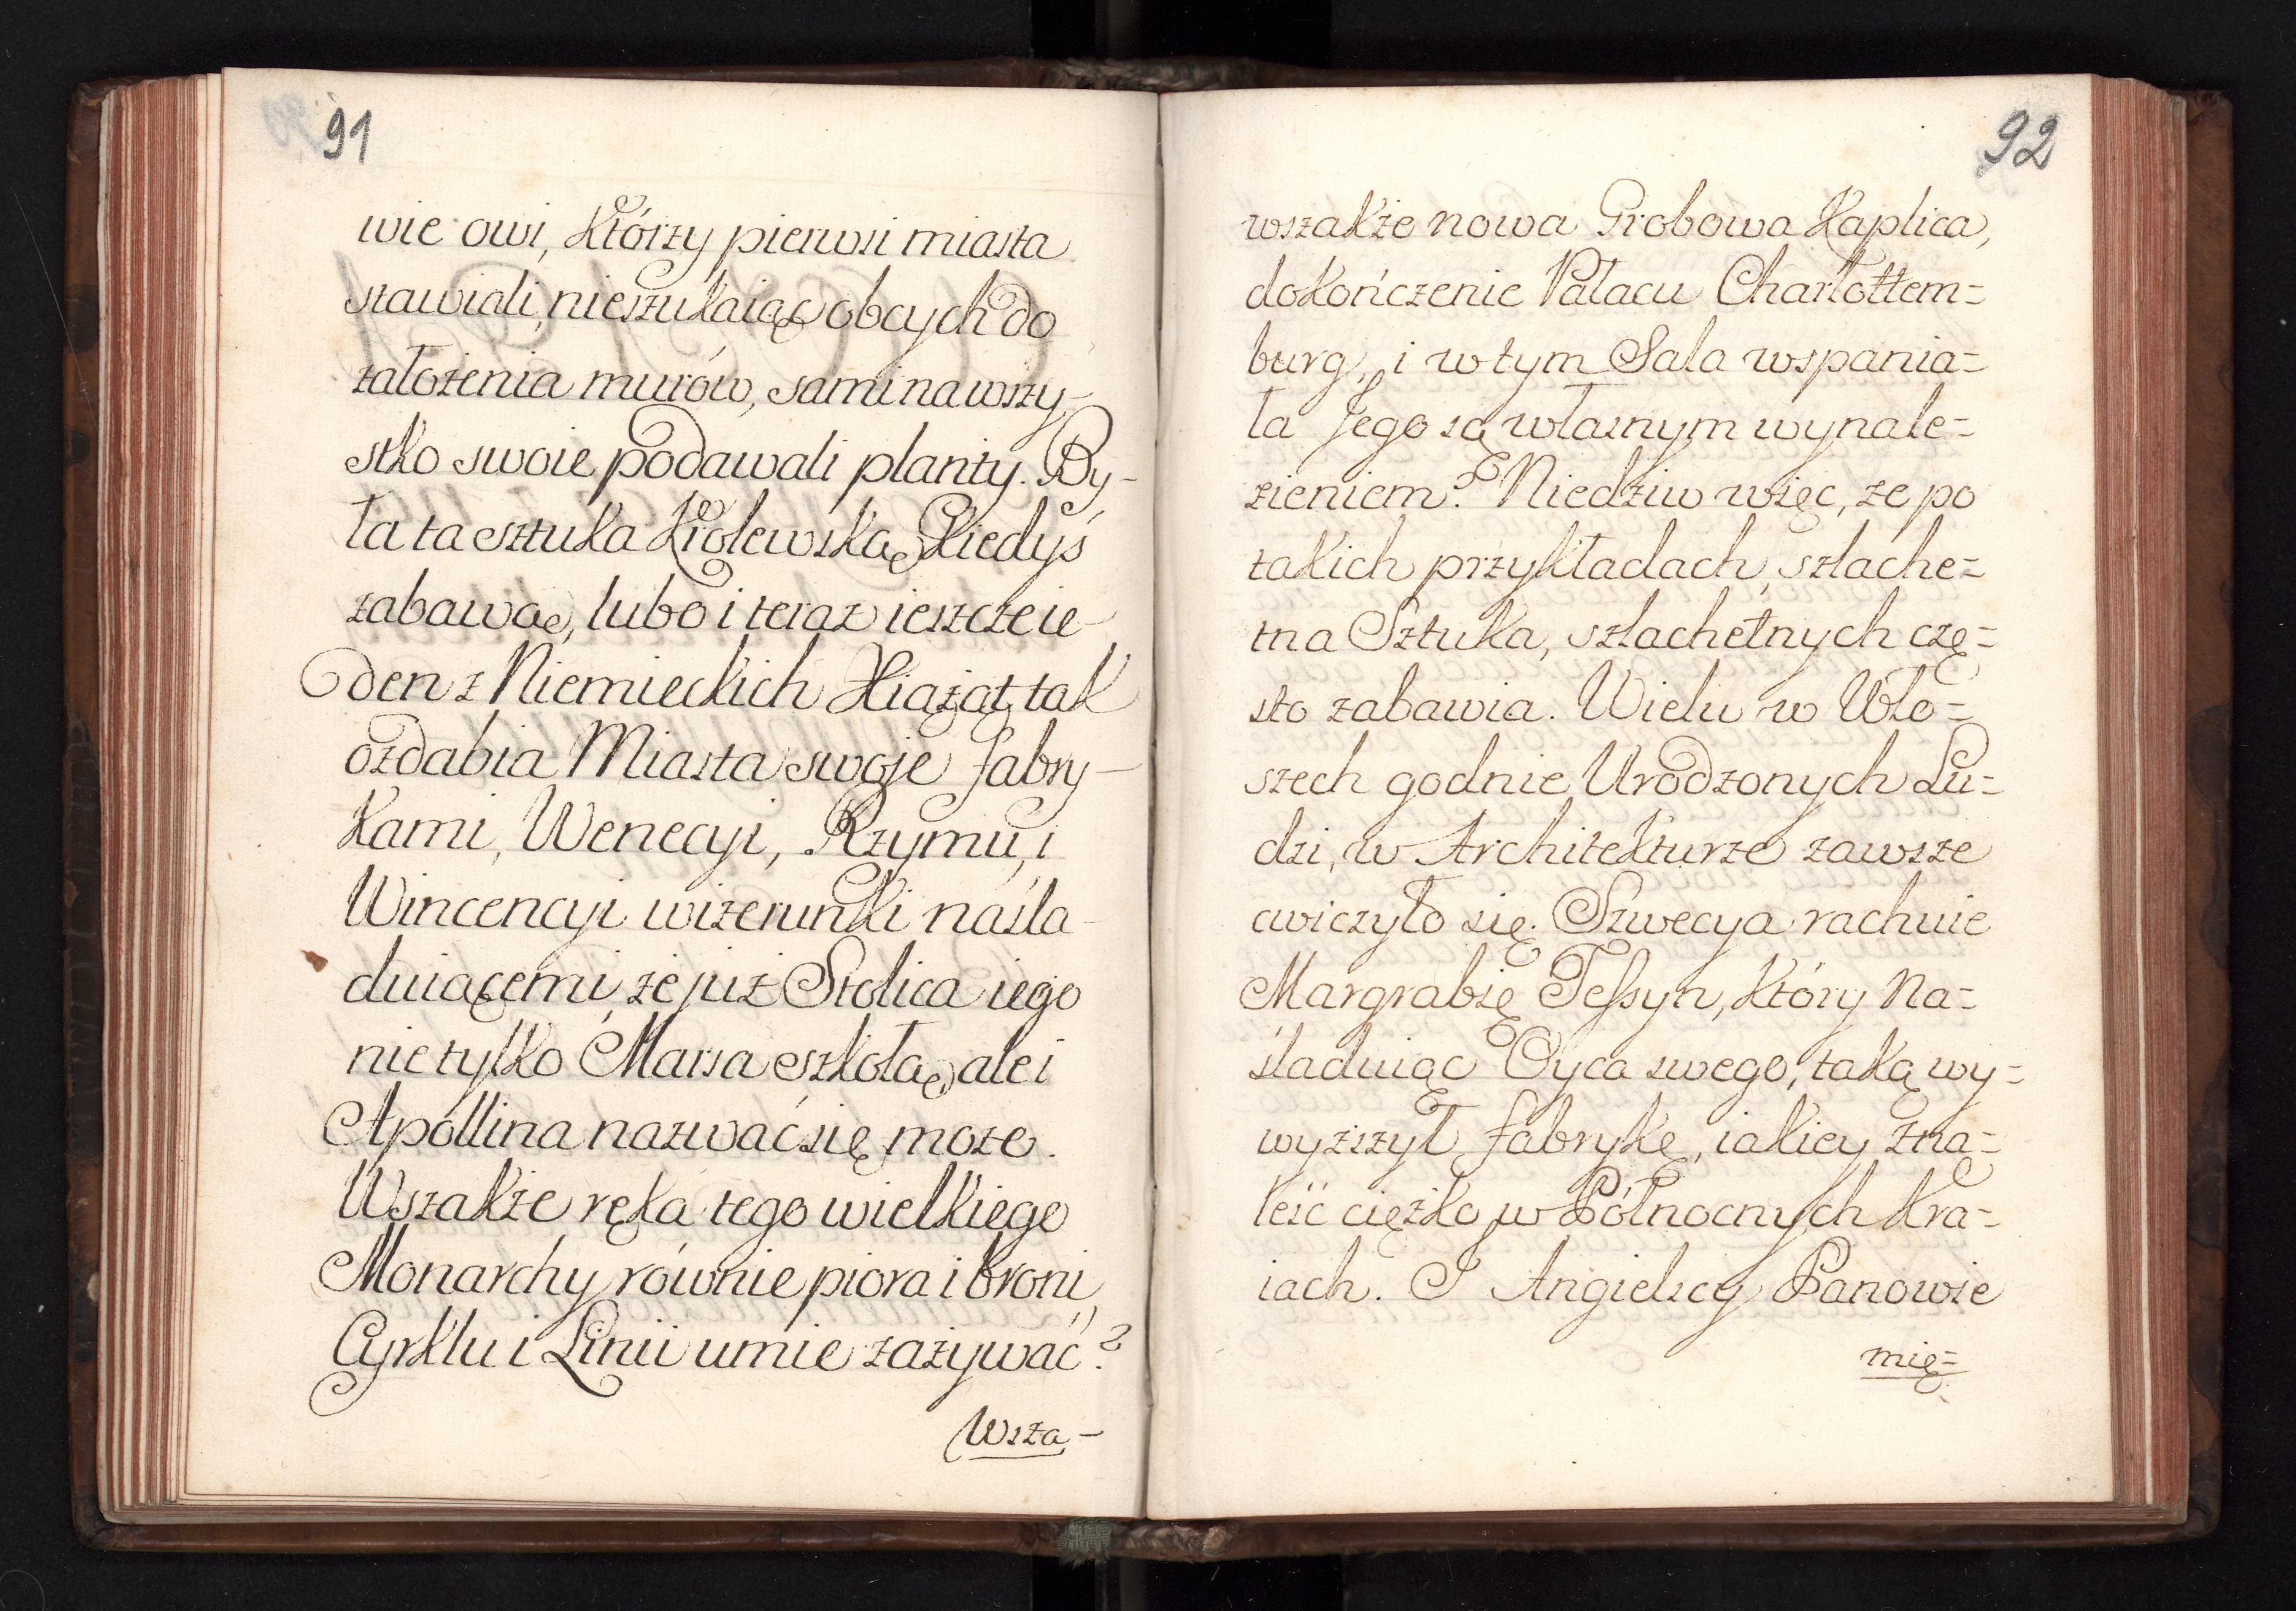 91
wie owi, którzy pierwsi miasta
stawiali, nieszukaiąc obcych do
założenia murów, sami na wszy-
stko swoie podawali planty. By-
ła ta sztuka Krolewską kiedyś
zabawą, lubo i teraz ieszcze ie-
den z Niemieckich Xiążąt tak
ozdabia Miasta swoje fabry-
kami, Wenecyi, Rzymu, i
Wincencyi wizerunki naśla-
duiącemi, że już Stolica iego
nie tylko Marsa szkołą, ale i
Apollina nazwać się może.
Wszakże ręka tego wielkiego
Monarchy, równie piora i broni,
Cyrklu i Linii umie zażywać?
Wsza-
92
wszakże nowa Grobowa Kaplica,
dokończenie Pałacu Charlottem=
burg, i w tym Sala wspania=
ła Jego są własnym wynale=
zieniem? Niedziw więc, że po
takich przykładach, szlache=
tna Sztuka, szlachetnych czę=
sto zabawia. Wielu w Wło=
szech godnie Urodzonych Lu=
dzi, w Architekturze zawsze
cwiczyło się. Szwecya rachuie
Margrabię Tessyn, który Na=
śladuiąc Oyca swego, taką wy=
wyższył fabrykę, iakiey zna=
leść ciężko w Północnych Kra=
iach. I Angielscy Panowie
mię=